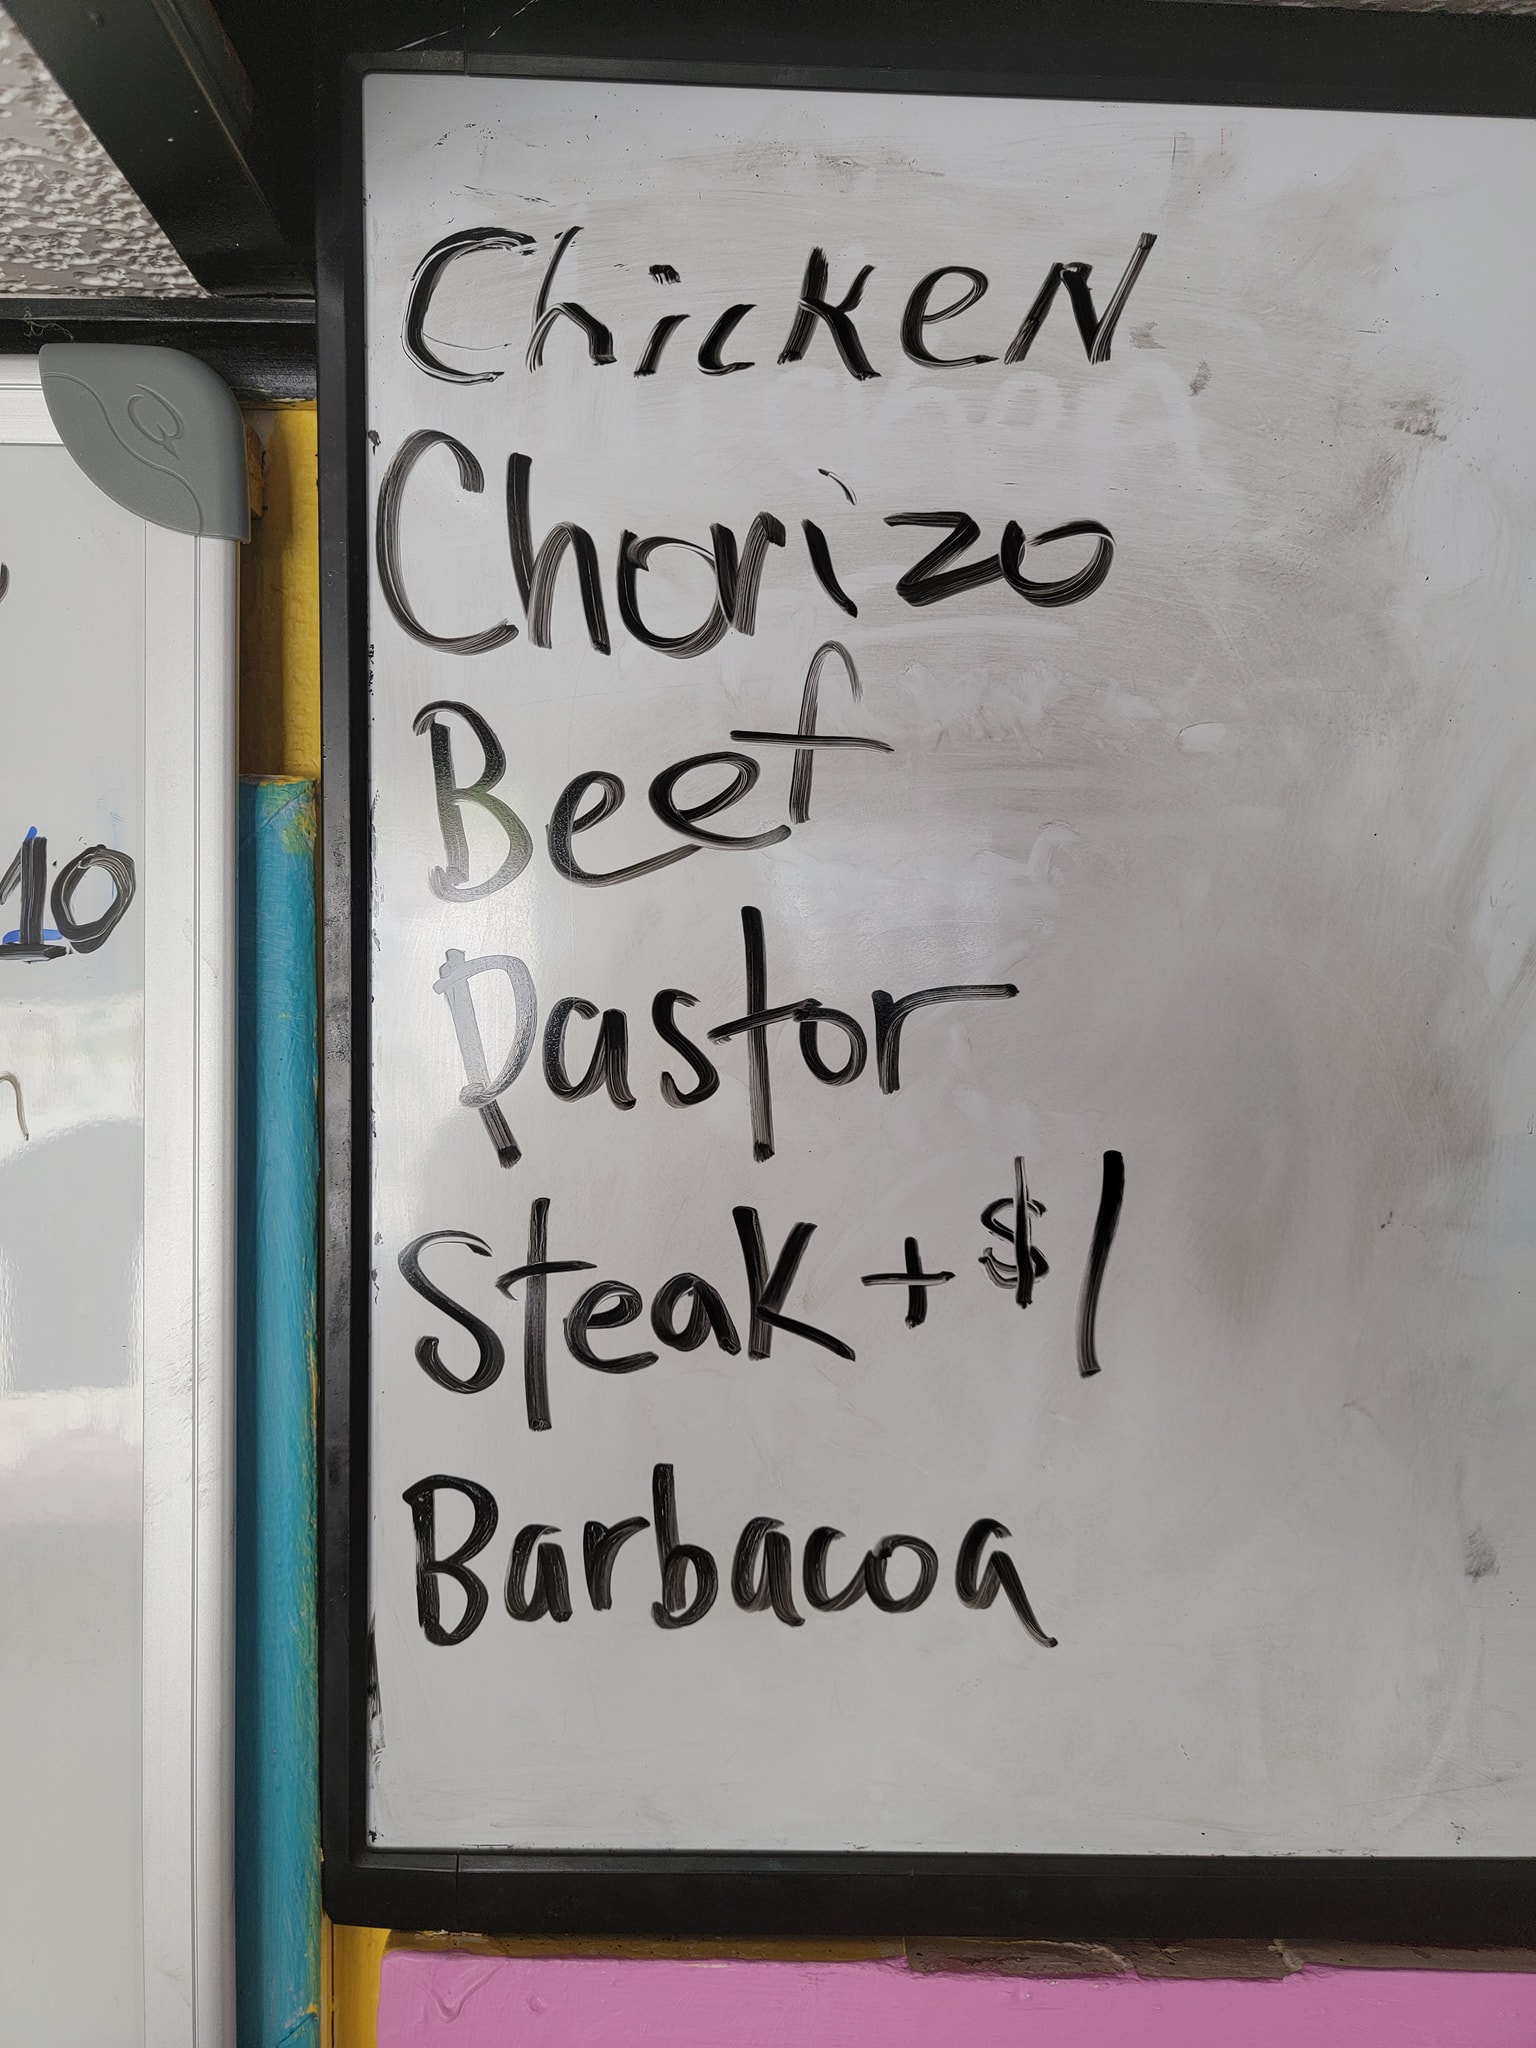 Chicken
Chorizo
Beef
Pastor
Steak + $1
Barbacoa
10